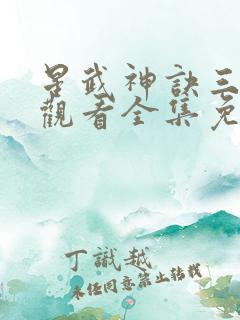 星武神訣三
觀看全集免
丁識越
未经同意禁止转载